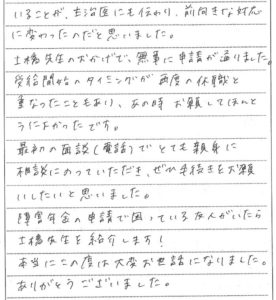 いることが、主治医にも伝わり、前向きな対応
に変わったのだと思いました。
土橋先生のおかげで、無事に申請が通りました。
受給開始のタイミングが再度の休職と
重なったこともあり、あの時お願してほんと
うによかったです。
最初の面談(電話)でとても親身に
相談にのっていただき、ぜひ手続きをお願
いしたいと思いました。
障害年金の申請で困っている友人がいたら
土橋先生を紹介します!
本当にこの度は大変お世話になりました。
ありがとうございました。